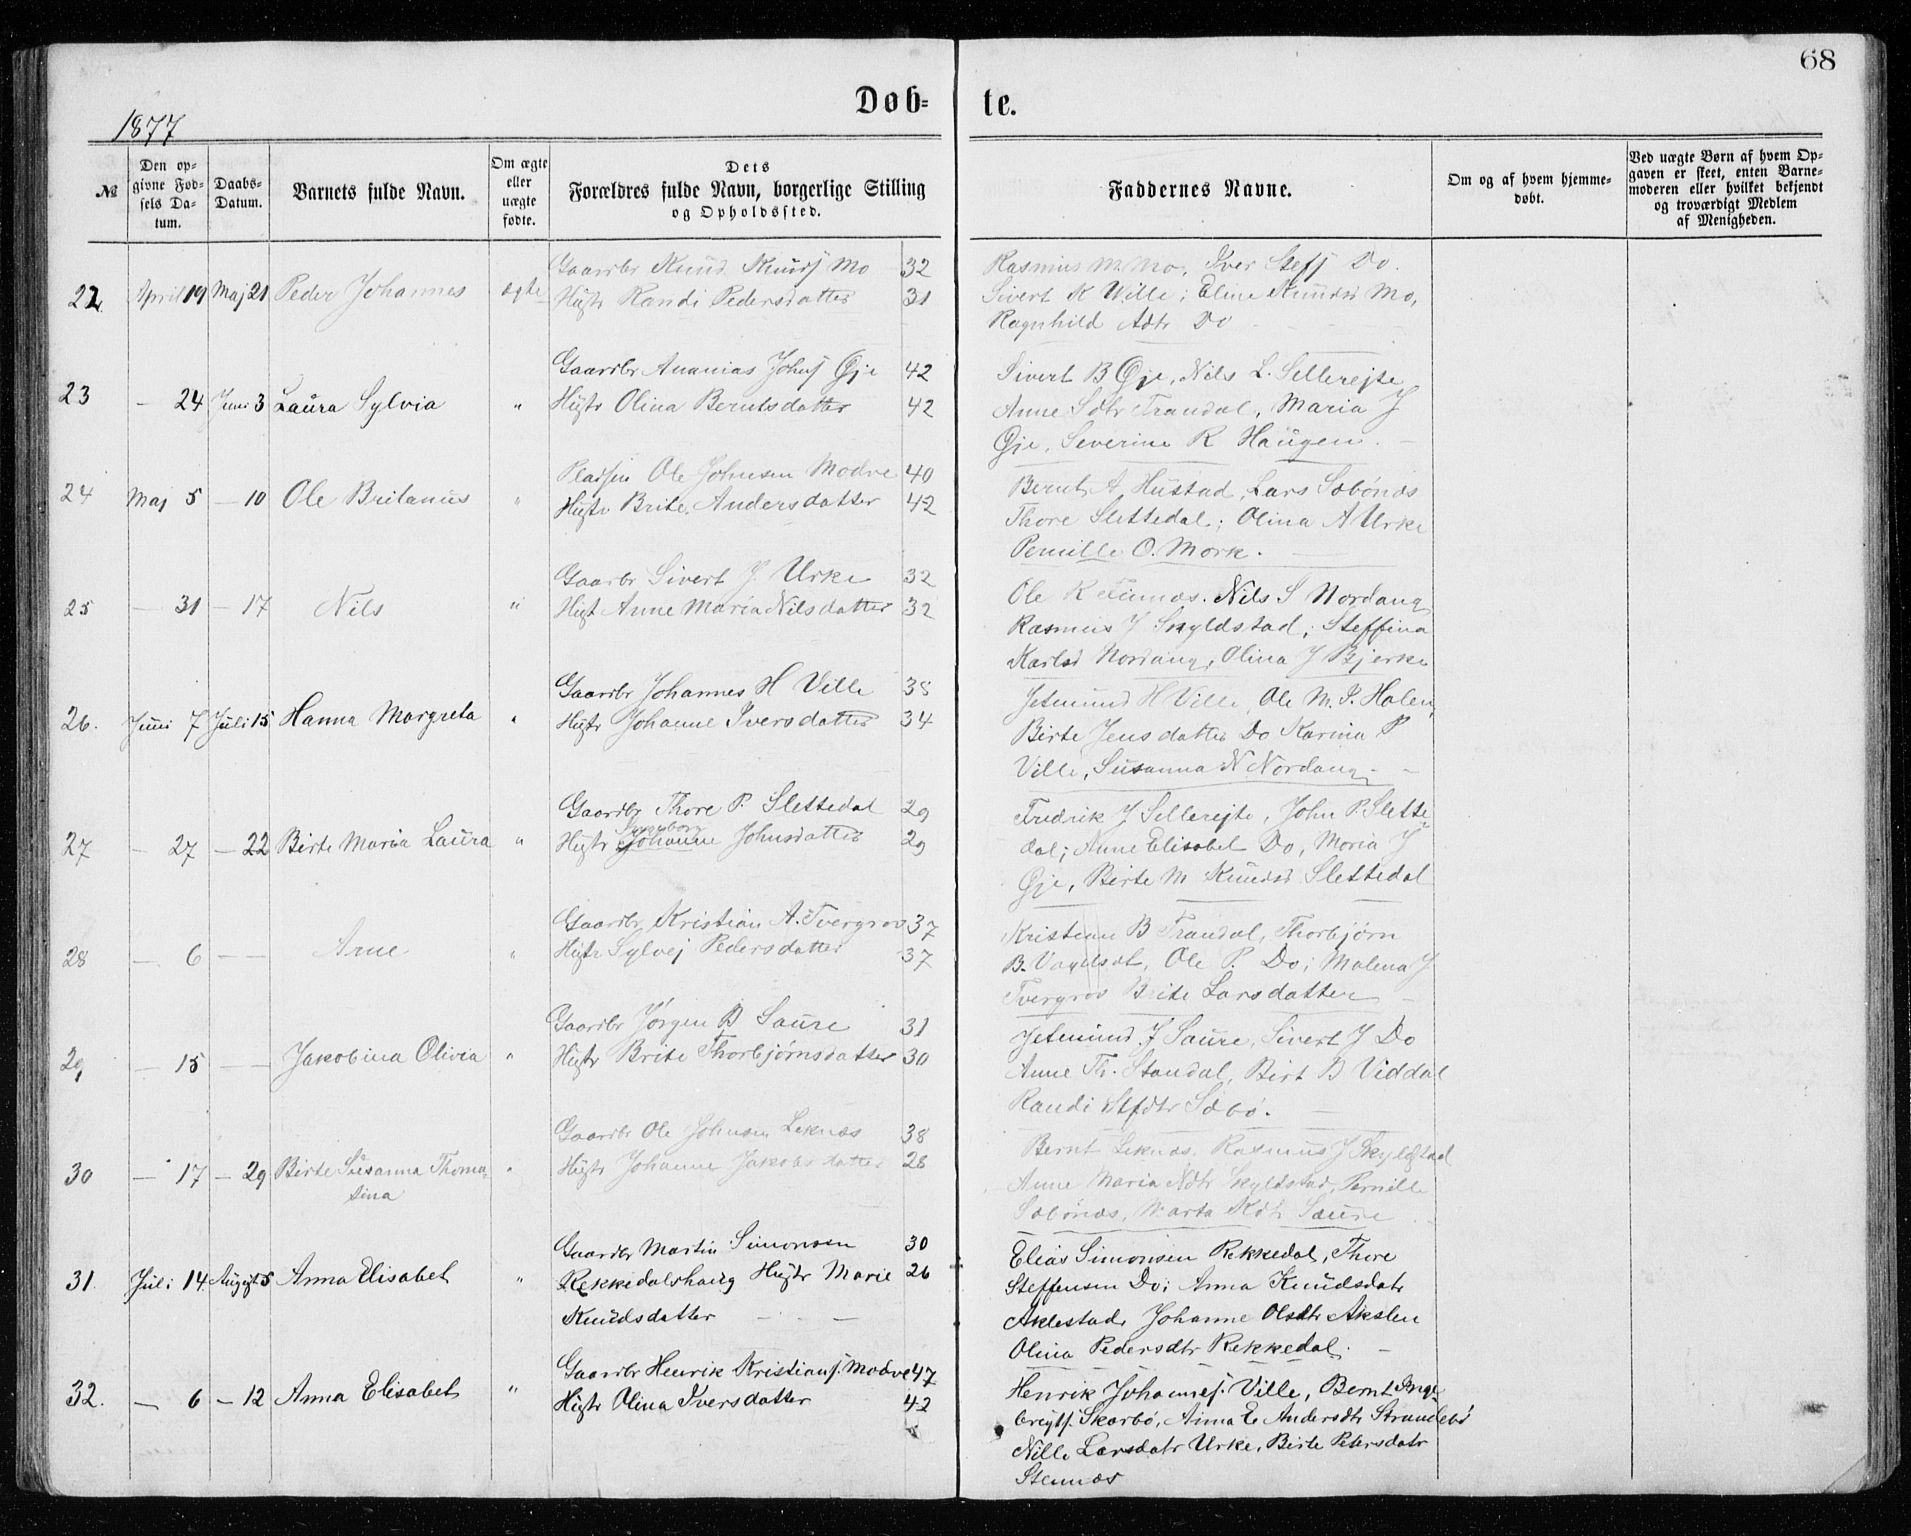 68
Døb-
te.
1877
№
Den op-
givne Fød-
sels Da-
tum.
Daabs-
Datum.
Barnets fulde Navn.
Om ægte
eller
uægte
fødte.
Dets
Forældres fulde Navn, borgerlige Stilling
og Opholdssted.
Faddernes Navne.
Om og af hvem hjemme-
døbt.
Ved uægte Børn af hvem Op-
gaven er skeet, enten Barne-
moderen eller hvilket bekjendt
og troværdigt Medlem
af Menigheden.
Gaardbr Knud Knudsj Mo 32
22. April 19 Maj 21 Peder Johannes ægte Hustr Randi Pedersdatter 31
Rasmus M. Mo, Iver Steffj Do.
Sivert K Wille; Eline Knudsd Mo,
Ragnhild Adtr Do
Gaardbr Ananias Johnsj Øje 42
23 — 24 Juni 3 Laura Sylvia " Hustr Olina Berntsdatter 42
Sivert B Øje, Nils L. Sellerejte
Anne Sdtr Trandal, Maria J
Øje, Severine R Haugen.
Pladssn Ole Johnsen Modve 40
24 Maj 5 — 10 Ole Britanus " Hustr Brite Andersdatter 42
Bernt A Hustad, Lars Sæbönæs
Thore Slettedal; Olina A Urke
Pernille O. Mork.
Gaarbr Sivert J. Urke 32
25 — 31 — 17 Nils " Hust Anne Maria Nilsdatter 32
Ole R Nils S Nordang
Rasmus J Skyldstad; Steffina
Karlsd Nordang, Olina J Bjerke
Gaardbr Johannes H Ville 38
26. Juni 7 Juli 15 Hanna Margreta " Hustr Johanne Iversdatter 34
Jetmund H Ville, Ole M. P. Holen,
Birte Jensdatter Do Karina P
Ville, Susanna N Nordang
Gaardbr Thore P. Slettedal 29
Ingeborg
27 — 27 — 22 Birte Maria Laura " Hustr Johanne Johnsdatter 29
Fredrik J Sellerejte, John P. Slette
dal; Anne Elisabet Do, Maria J
Øje, Birte M Knudsd Slettedal
Gaardbr Kristian A. Tvergrov 37
28 — 6 — — Arne " Hustr Sylvej Pedersdatter 37
Kristian B Trandal, Thorbjørn
B. Ole P. Do; Malena J
Tvergrov Brite Larsdatter
Gaardbr Jørgen B Saure 31
29, — 15 — — Jakobina Olivia " Hustr Brite Thorbjørnsdatter 30
Jetmund J Saure, Sivert J Do
Anne Th. Standal, Birt B Viddal
Randi Stfdtr Sæbø.
Gaardbr Ole Johnsen Leknæs 38
30 — 17 — 29 Birte Susanna Thoma- " Hustr Johanne Jakobsdatter 28
sina
Bernt Leknæs, Rasmus J Skyldstad
Anne Maria Ndtr Skyldstad, Pernille
Sæbönæs, Marta Kdtr Saure
Gaardbr Martin Simonsen 30
31. Juli 14 August 5 Anna Elisabet " Rekkedalshaug Hustr Marie 26
Knudsdatter
Elias Simonsen Rekkedal, Thore
Steffensen Do; Anna Knudsdatr
Aklestad, Johanne Olsdtr Akslen
Olina Pedersdtr Rekkedal.
Gaardbr Henrik Kristiansj. Modve 47
32. — 6 — 12 Anna Elisabet " Hustr Olina Iversdatter 42
Henrik Johannesj. Ville, Bernt Inge-
brigtsj. Skarbø, Anna E Andersdtr Strandebø
Nille Larsdatr Urke, Birte Petersdatr
Stennæs